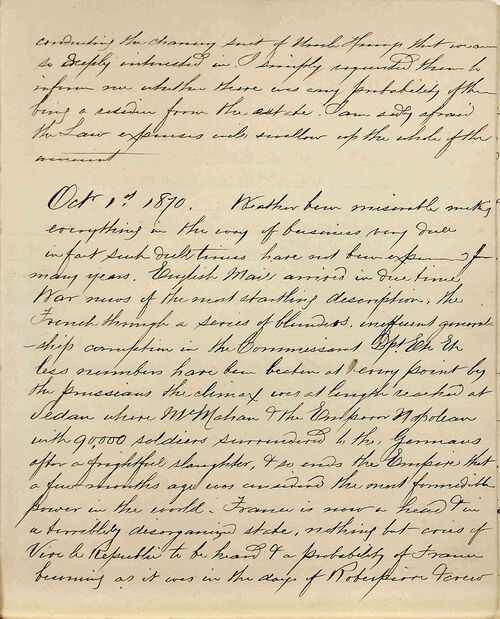 conducting the chancery suit of Uncle Thomas that we are
so deeply interested in I simply requested them to
inform me whether there was any probability of there
being a residue from the estate. I am sadly afraid
the Law expenses will swallow up the whole of the
amount
Octr 1st 1870. Weather been miserable making
everything in the way of business very dull
in fact such dull times have not been experienced for
many years. English Mail arrived in due time
War news of the most startling description, the
French through a series of blunders, inefficient general
-ship corruption in the Commissariat Dpt Etc Etc
less numbers have been beaten at every point by
the prussians the climax was at length reached at
Sedan where McMahon & the Emperor Napoleon
with 90,000 soldiers surrendered to the Germans
after a frightful slaughter, & so ends the Empire that
a few months ago was considered the most formidable
power in the world. France is now a head & in
a terribly disorganized state, nothing but cries of
Vive le Republic to be heard & a probability of France
becoming as it was in the days of Robespierre & crew